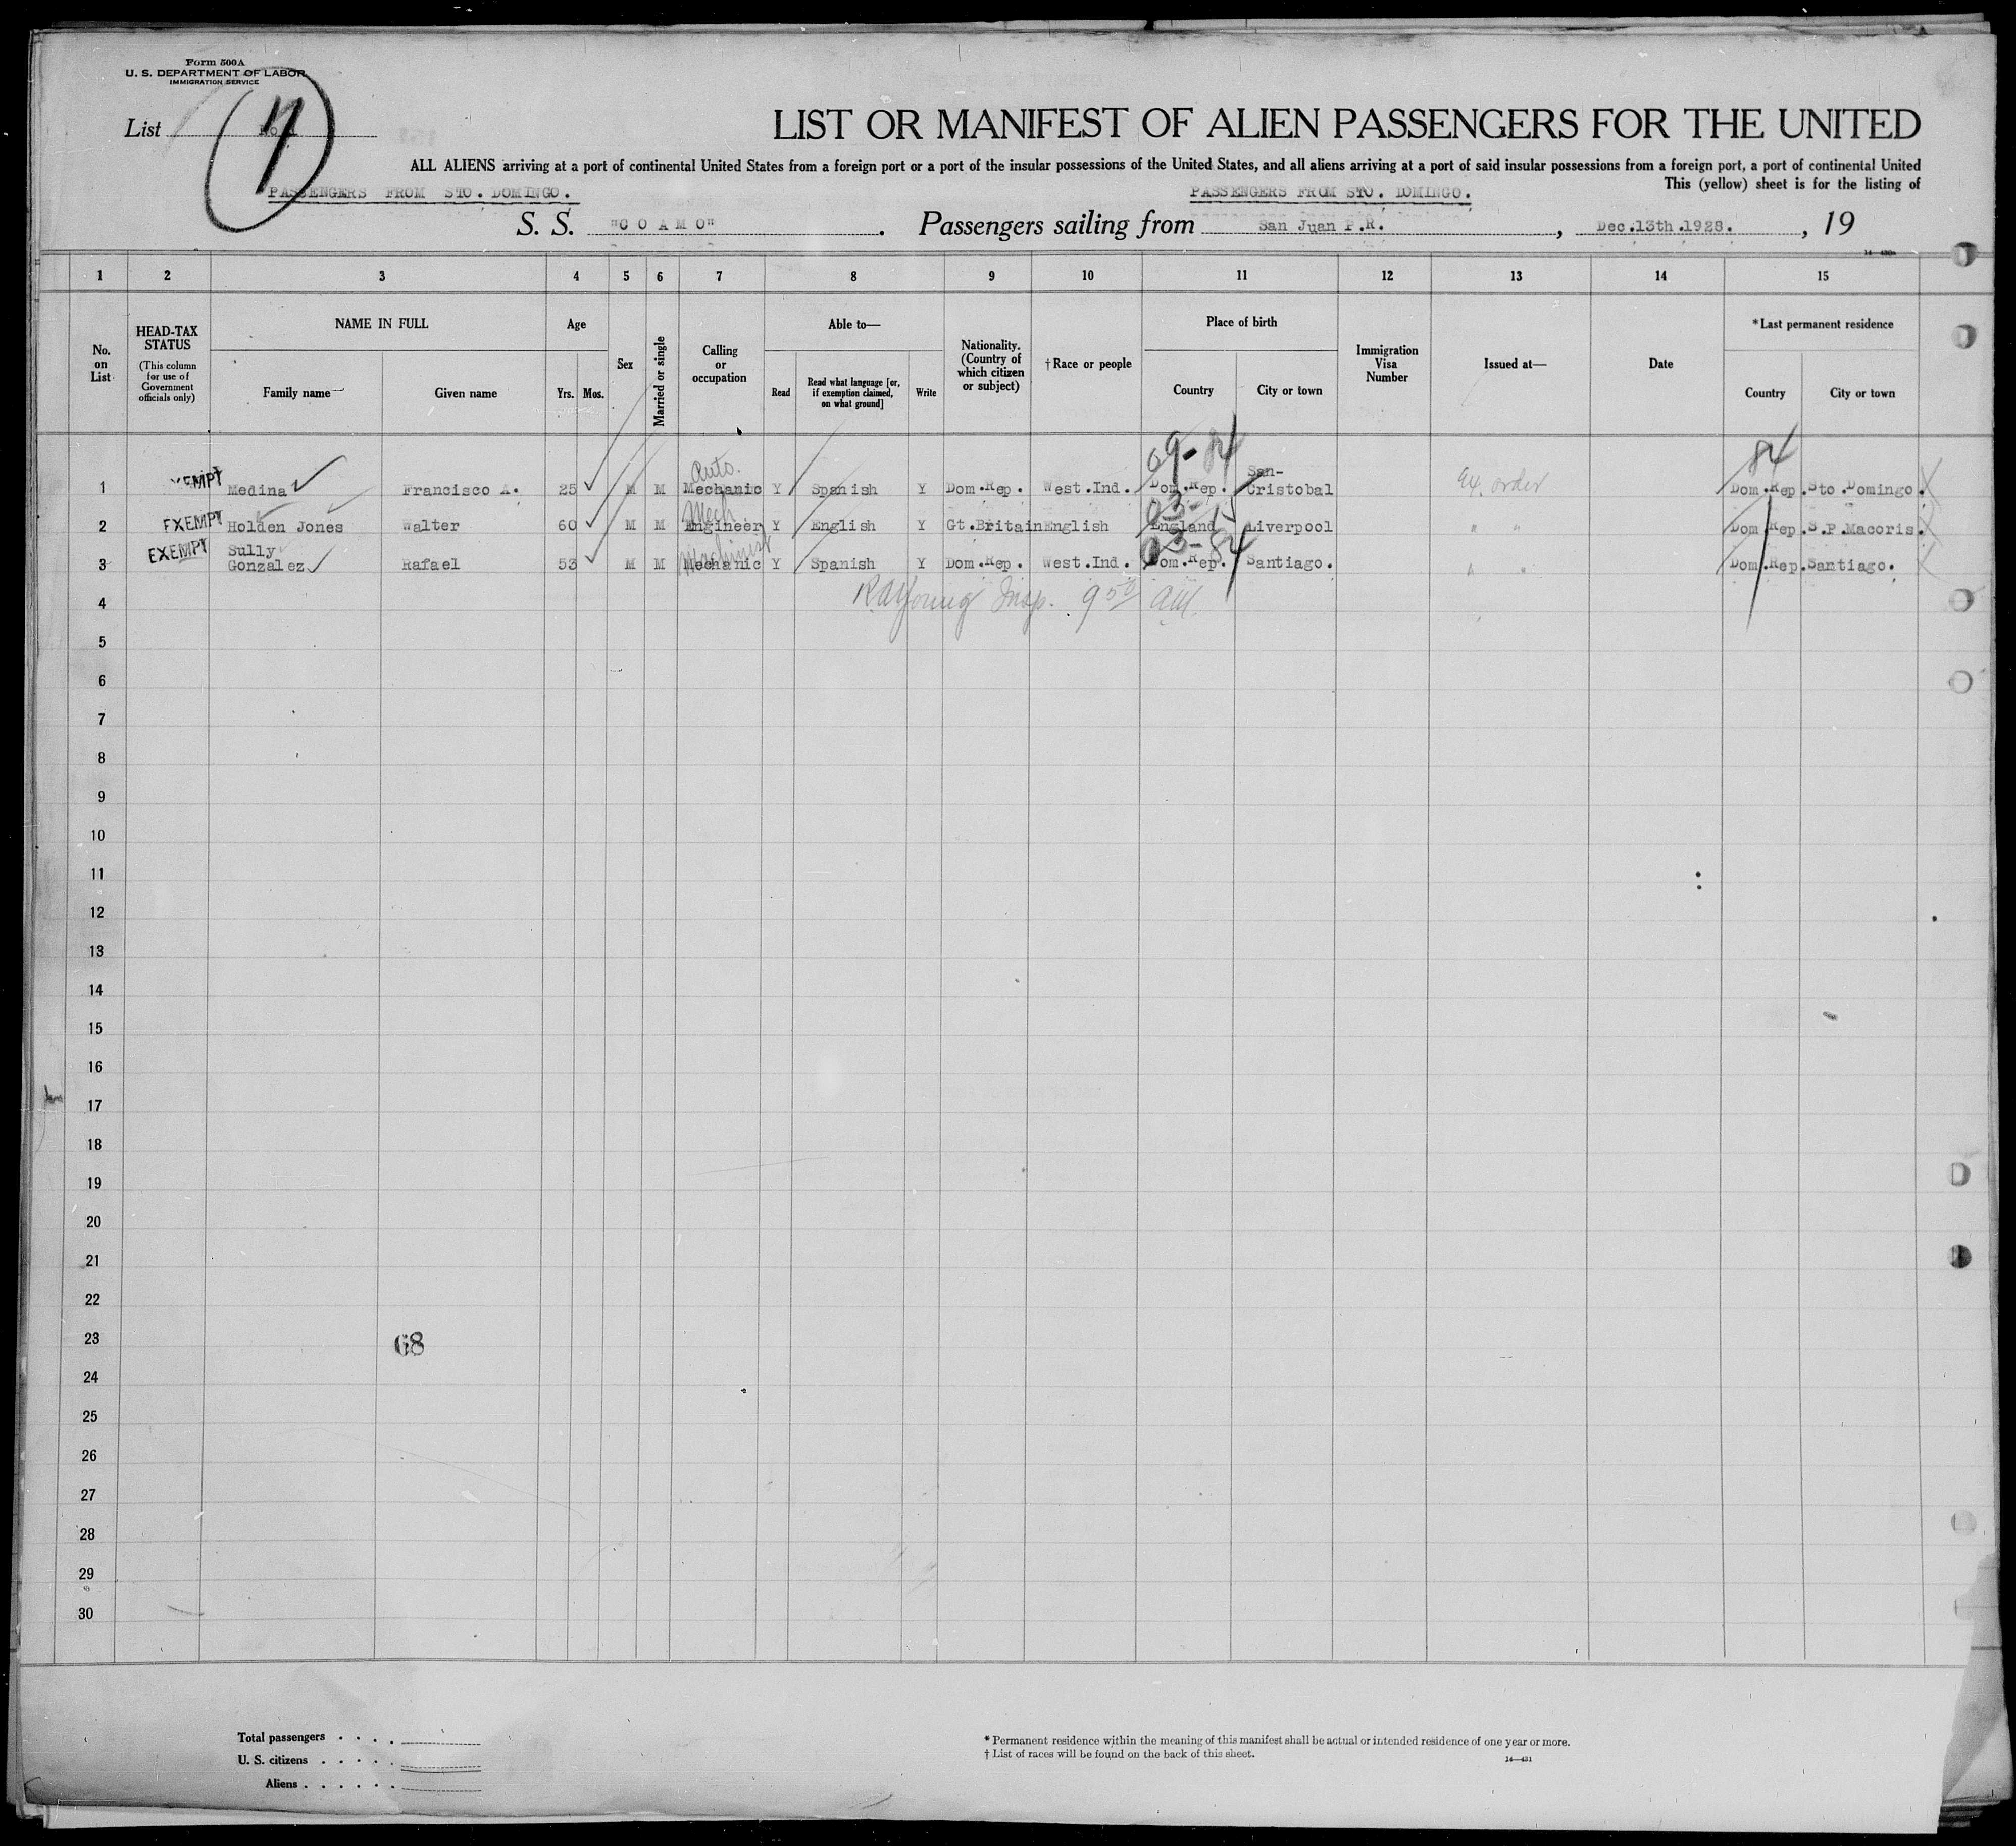 Form 500A
U. S. DEPARTMENT OF LABOR
IMMIGRATION SERVICE
List
LIST OR MANIFEST OF ALIEN PASSENGERS FOR THE UNITED
ALL ALIENS arriving at a port of continental United States from a foreign port or a port of the insular possessions of the United States, and all aliens arriving at a port of said insular possessions from a foreign port, a port of continental United
This (yellow) sheet is for the listing of
PASSENGERS FROM STO. DOMINGO. PASSENGERS FROM STO. DOMINGO.
S. S. "C O A M O". Passengers sailing from San Juan P.R. , Dec.13th.1928. , 19
14—430a
1 2 3 4 5 6 7 8 9 10 11 12 13 14 15
No. on List
HEAD-TAX STATUS
(This column for use of Government officials only)
NAME IN FULL
Family name Given name
Age
Yrs. Mos.
Sex
Married or single
Calling or occupation
Able to—
Read
Read what language [or, if exemption claimed, on what ground]
Write
Nationality. (Country of which citizen or subject)
† Race or people
Place of birth
Country City or town
Immigration Visa Number
Issued at—
Date
* Last permanent residence
Country City or town
09-84 84
Auto. San-
1 EXEMPT Medina Francisco A. 25 M M Mechanic Y Spanish Y Dom.Rep. West.Ind. Dom.Rep. Cristobal Ex. order Dom.Rep. Sto.Domingo.
Mech
2 EXEMPT Holden Jones Walter 60 M M Engineer Y English Y Gt.Britain English England Liverpool " " Dom.Rep. S.P.Macoris.
Sully Machinist 03-84
3 EXEMPT Gonzalez Rafael 53 M M Mechanic Y Spanish Y Dom.Rep. West.Ind. Dom.Rep. Santiago. " " Dom.Rep. Santiago.
4 Young Insp. 9 50 AM.
5
6
7
8
9
10
11
12
13
14
15
16
17
18
19
20
21
22
23 68
24
25
26
27
28
29
30
Total passengers . . . .
U. S. citizens . . . . .
Aliens . . . . . .
* Permanent residence within the meaning of this manifest shall be actual or intended residence of one year or more.
† List of races will be found on the back of this sheet.
14—431